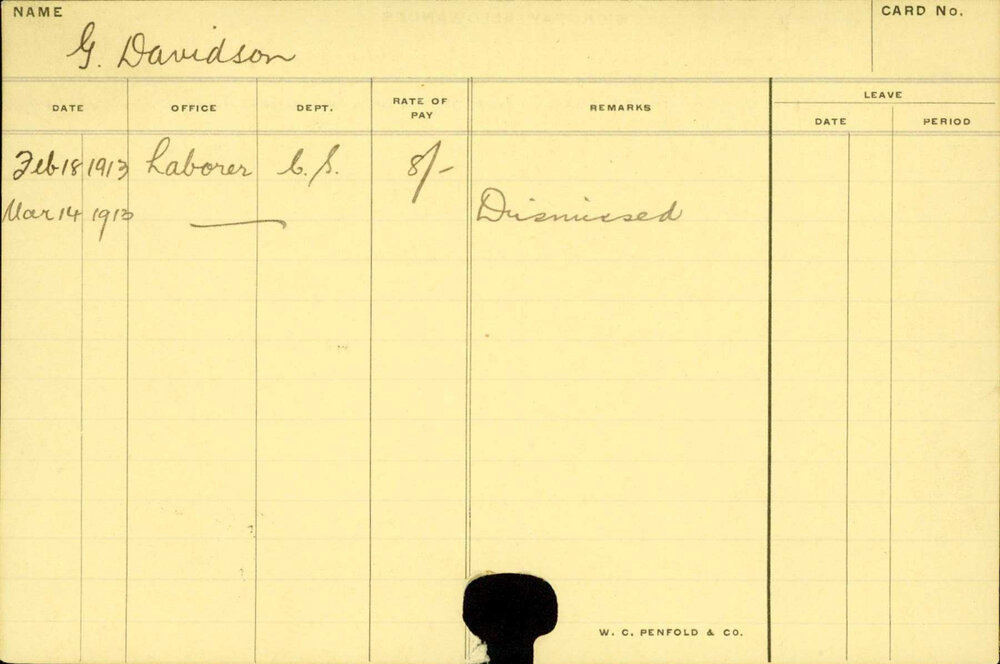 NAME
CARD No.
G. Davidson
DATE OFFICE DEPT. RATE OF PAY REMARKS LEAVE
DATE PERIOD
Feb 18 1913 Laborer C.S. 8/-
Mar 14 1913 Dismissed
W. C. PENFOLD & CO.